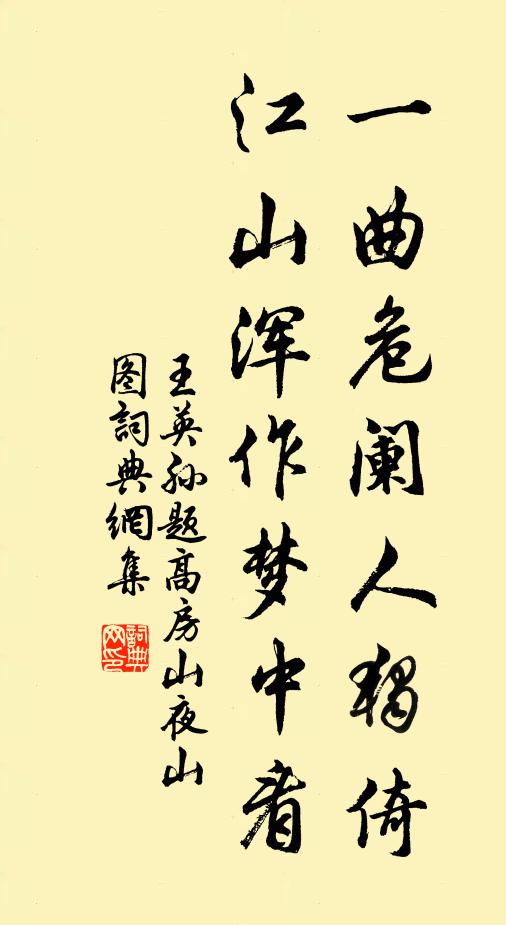 一曲危阑人独倚
江山浑作梦中看
王英孙题高房山夜山
图詞典網集
詞典網印